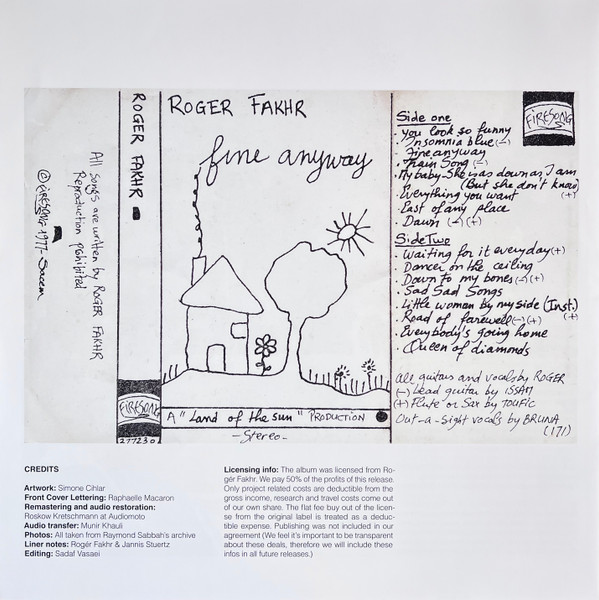 All Songs are written by ROGER FAKHR
Reproduction prohibited
© FIRESONG 1977 - Sacem
ROGER FAKHR
FIRESONG
ROGER FAKHR
fine anyway
A "Land of the sun" PRODUCTION
- Stereo -
FIRESONG
Side one
. You look so funny
. Insomnia blue (-)
. Fine anyway
. Train Song (-)
. My baby-She was down as I am
(But she don't know)
. Everything you want (+)
. East of any place
. Dawn (-) (+)
Side Two
. Waiting for it everyday (+)
. Dancer on the ceiling
. Down to my bones (-) (+)
. Sad Sad Songs
. Little woman by my side (Inst.)
(+)
. Road of farewell (-) (+)
. Everybody's going home
. Queen of diamonds
All guitars and vocals by ROGER
(-) Lead guitar by ISSAM
(+) Flute or Sax by TOUFIC
Out-a-sight vocals by BRUNA
CREDITS
Artwork: Simone Cihlar
Front Cover Lettering: Raphaelle Macaron
Remastering and audio restoration:
Roskow Kretschmann at Audiomoto
Audio transfer: Munir Khauli
Photos: All taken from Raymond Sabbah's archive
Liner notes: Rogér Fakhr & Jannis Stuertz
Editing: Sadaf Vasaei
Licensing info: The album was licensed from Ro-
gér Fakhr. We pay 50% of the profits of this release.
Only project related costs are deductible from the
gross income, research and travel costs come out
of our own share. The flat fee buy out of the licen-
se from the original label is treated as a deduc-
tible expense. Publishing was not included in our
agreement (We feel it's important to be transparent
about these deals, therefore we will include these
infos in all future releases.)